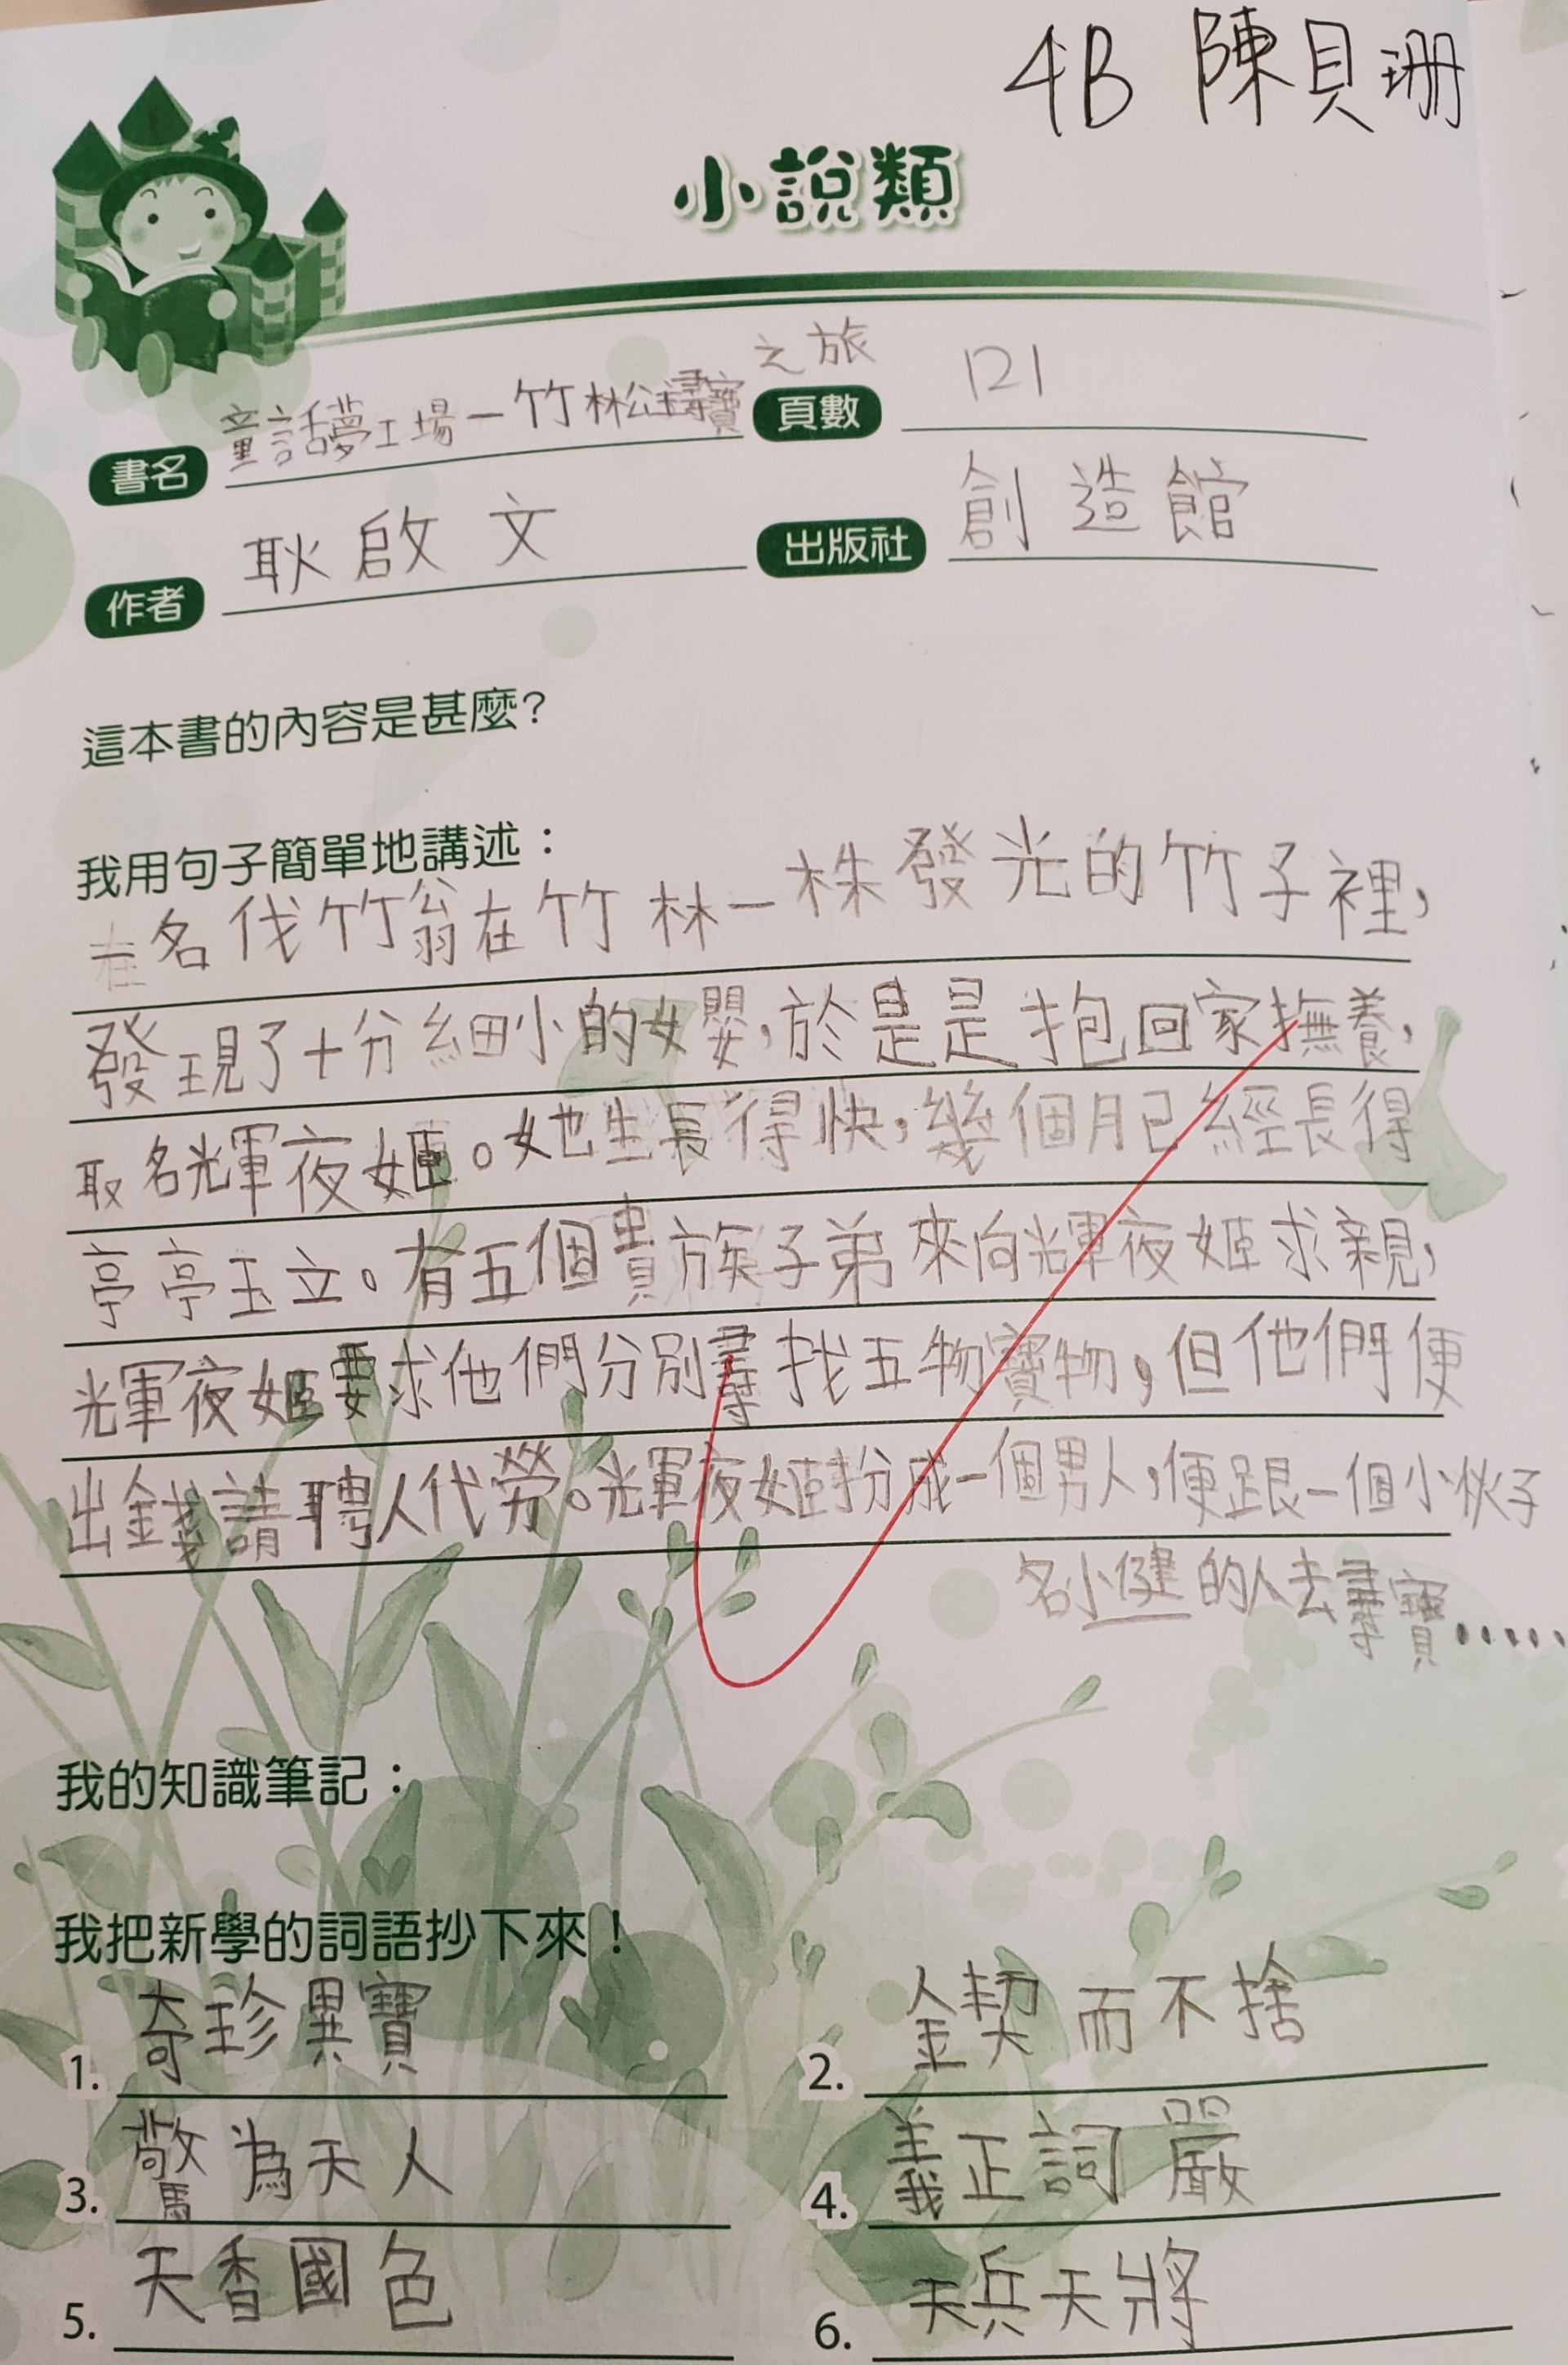 4B 陳貝珊
小說類
書名 童話夢工場－竹林公主尋寶之旅 頁數 121
作者 耿啟文 出版社 創造館
這本書的內容是甚麼？
我用句子簡單地講述：
名伐竹翁在竹林一株發光的竹子裡，
發現了十分細小的女嬰，於是是抱回家撫養，
取名輝夜姬。她生長得快，幾個月已經長得
亭亭玉立。有五個貴族子弟來向輝夜姬求親，
輝夜姬要求他們分別尋找五物寶物，但他們便
出錢請聘人代勞。輝夜姬扮成一個男人，便跟一個小伙子
名小健的人去尋寶......
我的知識筆記：
我把新學的詞語抄下來！
1. 奇珍異寶 2. 鍥而不捨
3. 驚為天人 4. 義正詞嚴
5. 天香國色 6. 天兵天將